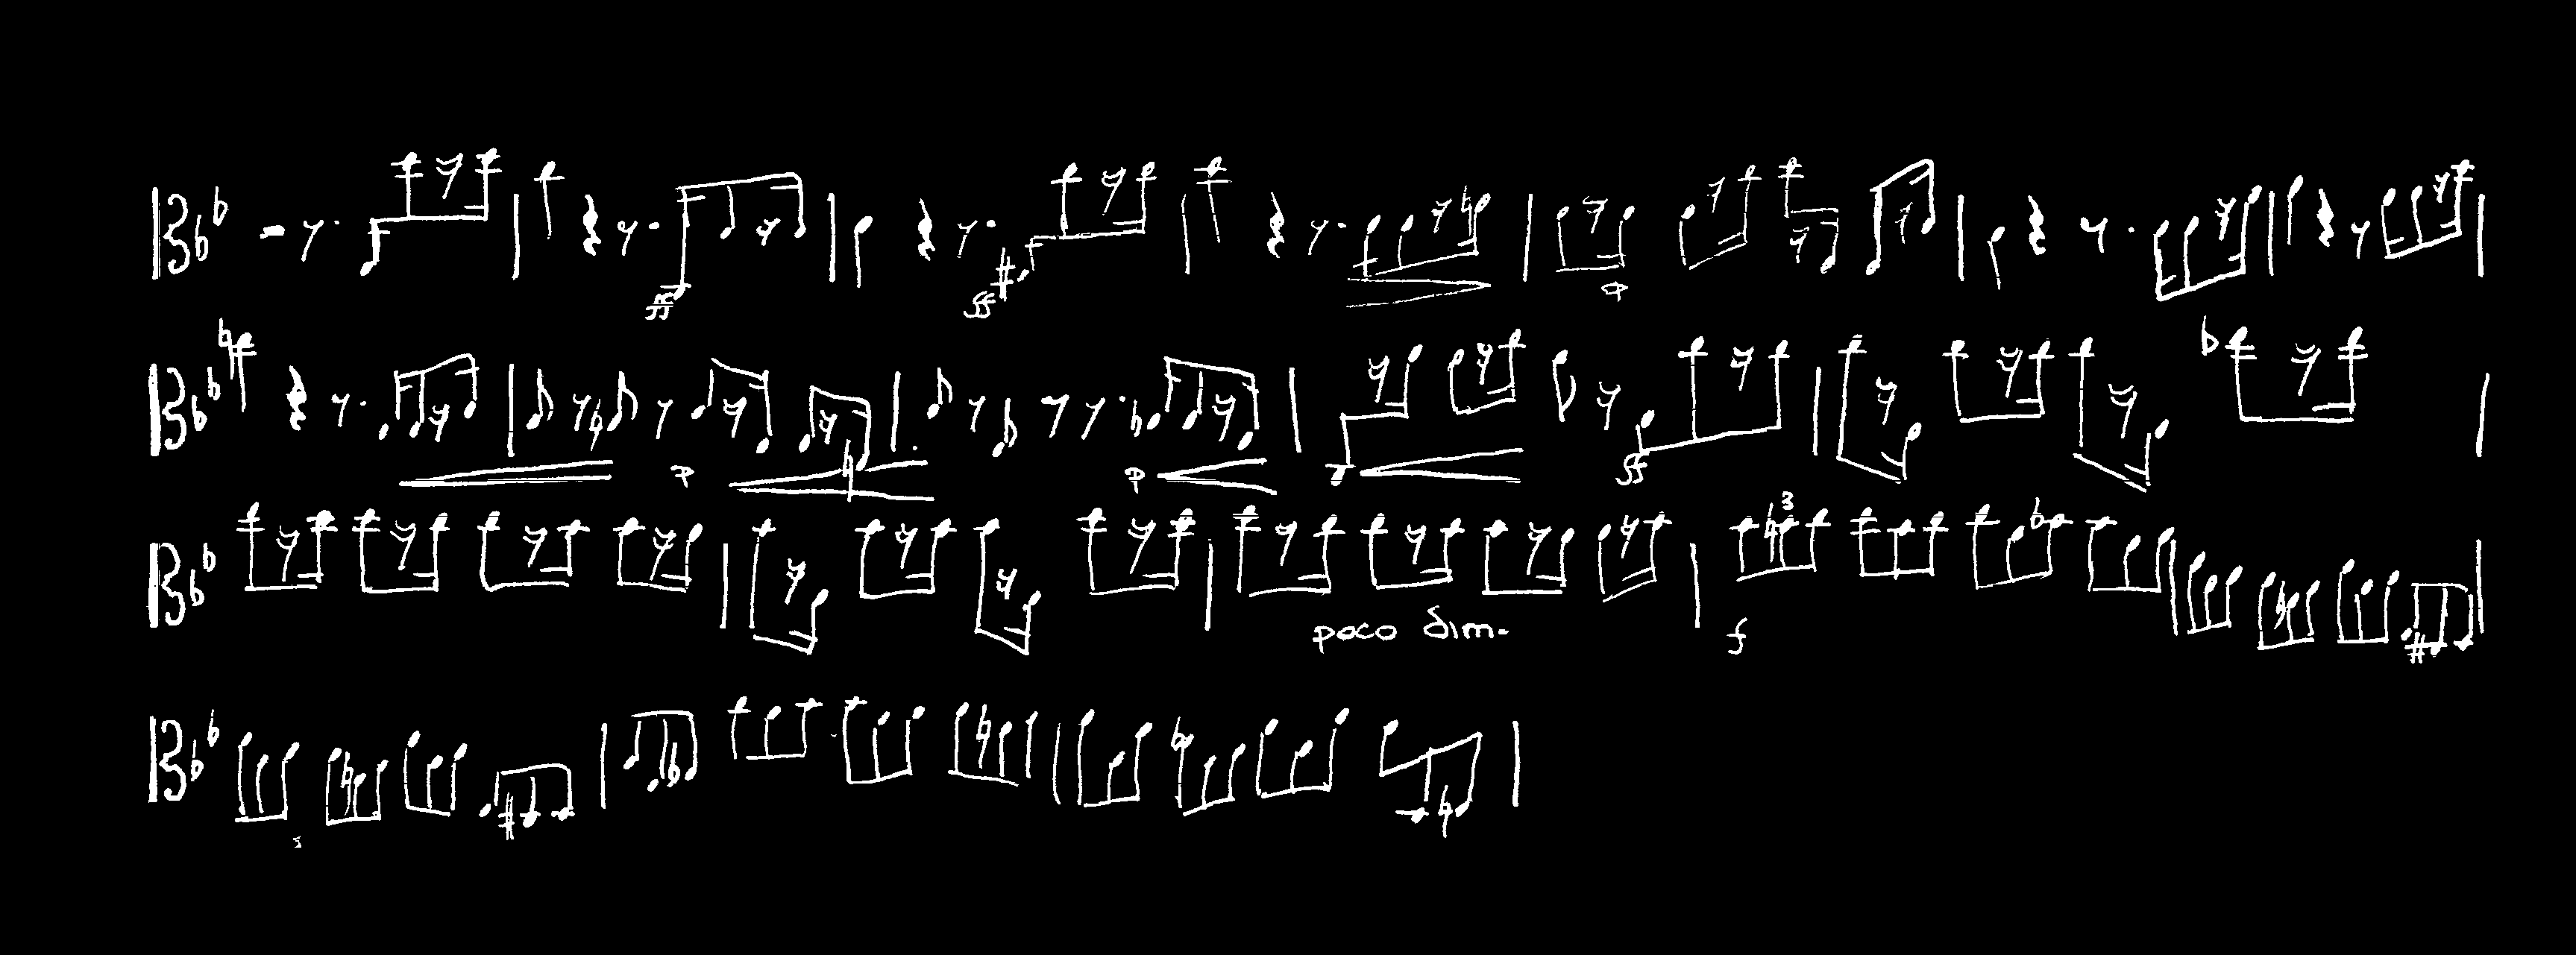 ff ff p
p p ff
3
poco dim. f